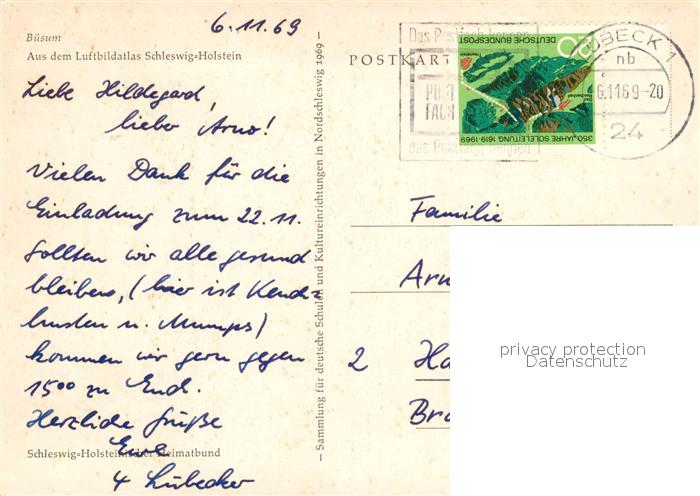 6.11.69
Büsum
Aus dem Luftbildatlas Schleswig-Holstein
Liebe Hildegard,
lieber Arno!
Vielen Dank für die
Einladung zum 22.11.
Sollten wir alle gesund
bleiben, (hier ist Keuch=
husten u. Mumps)
kommen wir gern gegen
15⁰⁰ zu Euch.
Herzliche Grüße
Eure
4 Lübecker
Schleswig-Holsteinischer Heimatbund
– Sammlung für deutsche Schulen und Kultureinrichtungen in Nordschleswig 1969 –
POSTKART
Das Postfach kennen
POST
FACH
das Postfach kennen
DEUTSCHE BUNDESPOST
20
350 JAHRE SOLELEITUNG 1619-1969
LÜBECK 1
nb
6.11.69-20
24
Familie
Arn
2 Ha
Bra
privacy protection
Datenschutz